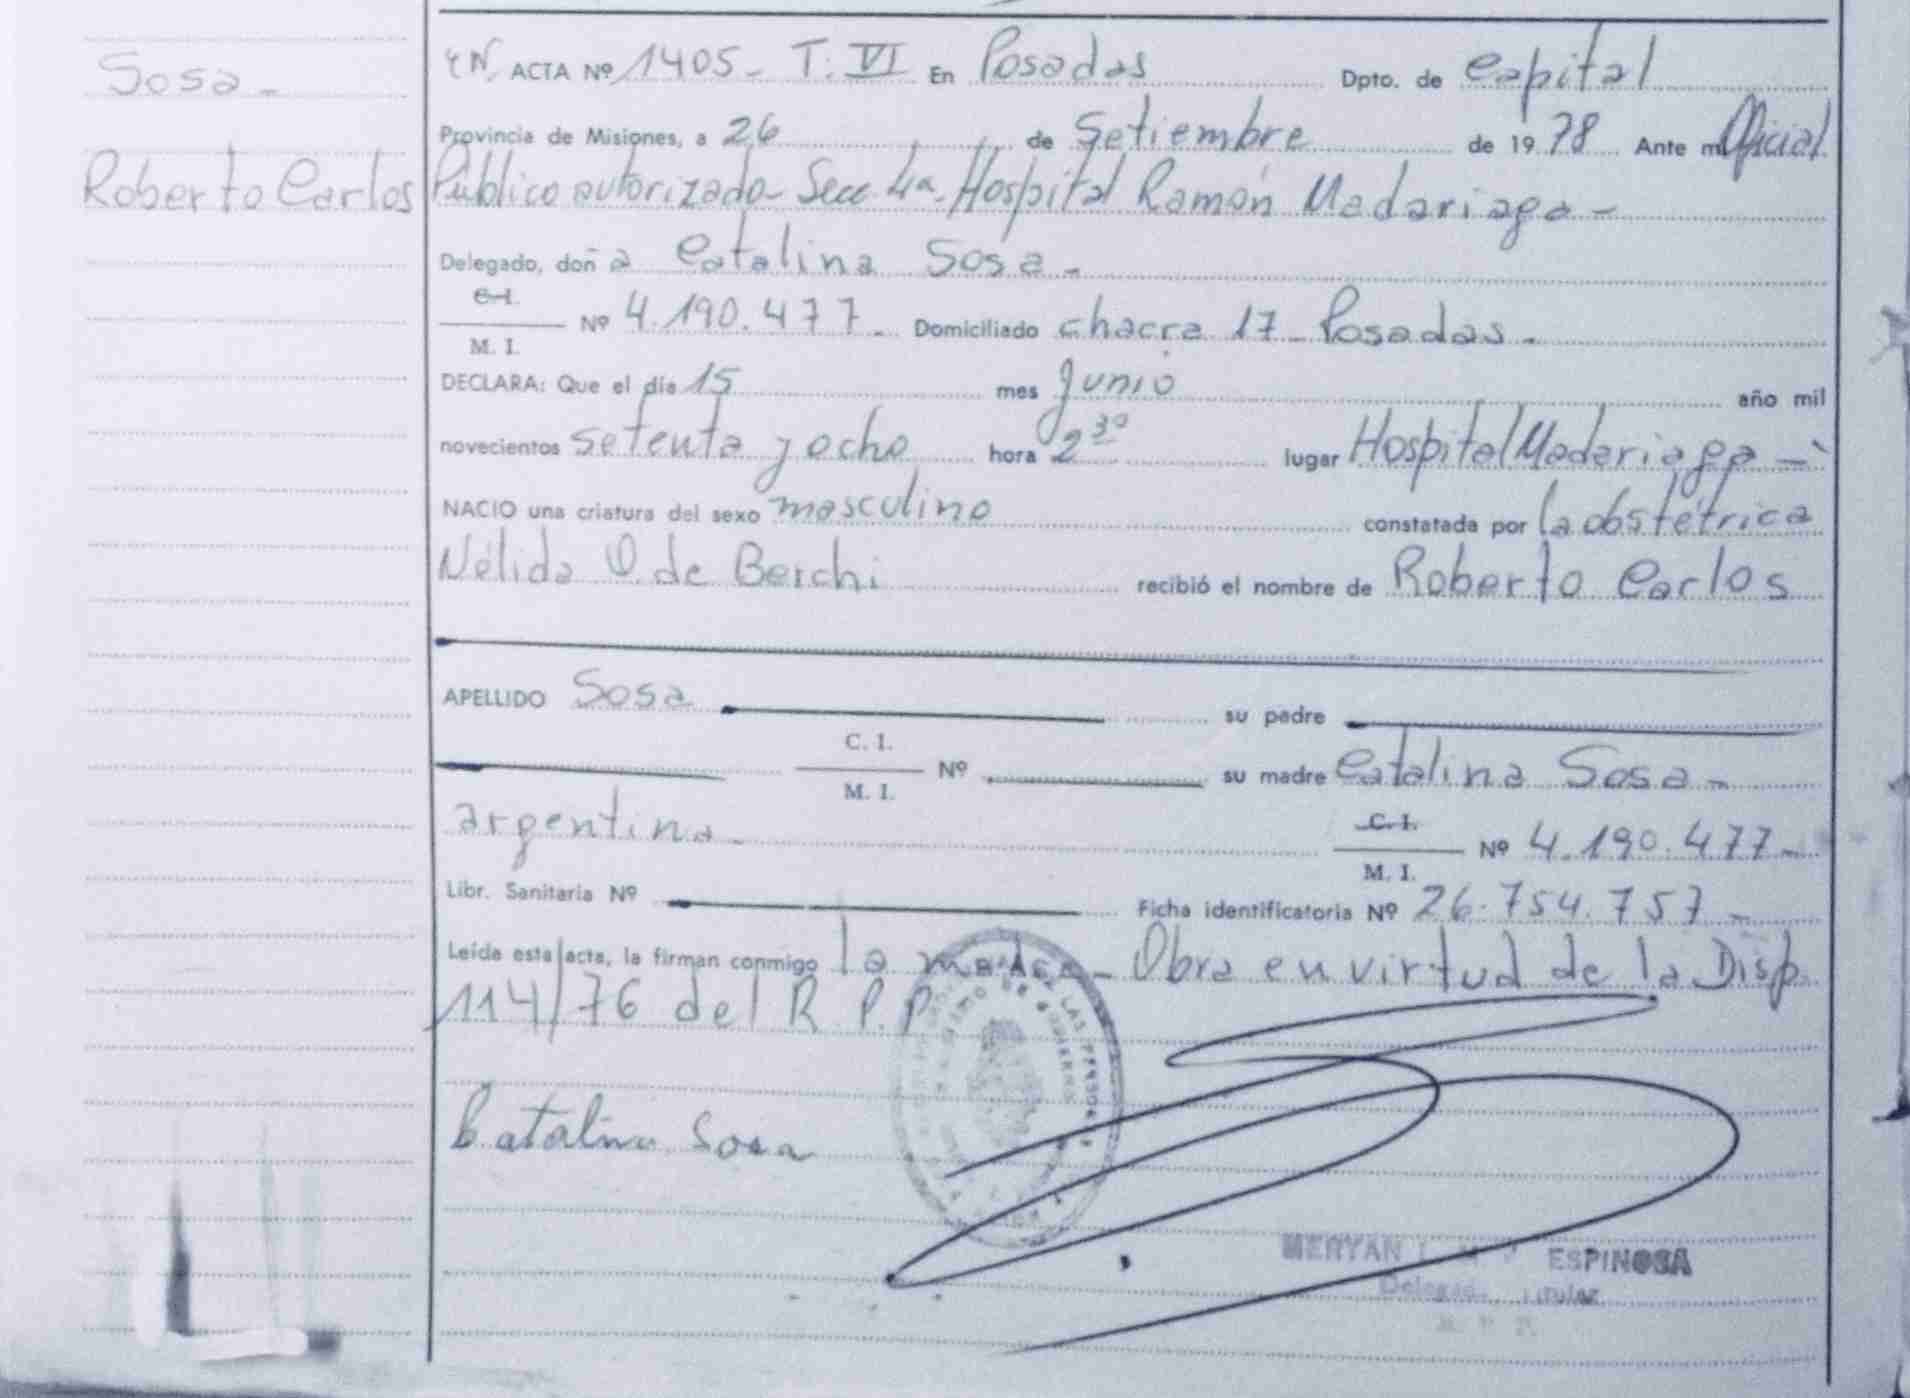 Sosa -
Roberto Carlos
ACTA Nº 1405 - T. VI En Posadas Dpto. de Capital
Provincia de Misiones, a 26 de Setiembre de 1978 Ante mí Oficial
Público autorizado - Secc. 4a. Hospital Ramón Madariaga -
Delegado, doña Catalina Sosa -
C. I.
M. I. Nº 4.190.477 - Domiciliado chacra 17 - Posadas -
DECLARA: Que el día 15 mes Junio año mil
novecientos setenta y ocho hora 2 30 lugar Hospital Madariaga -
NACIO una criatura del sexo masculino constatada por la obstétrica
Nélida O. de Berchi recibió el nombre de Roberto Carlos
APELLIDO Sosa su padre
C. I.
M. I. Nº su madre Catalina Sosa -
argentina - C. I.
M. I. Nº 4.190.477 -
Libr. Sanitaria Nº Ficha identificatoria Nº 26.754.757 -
Leída esta acta, la firman conmigo la madre - Obra en virtud de la Disp.
114/76 del R. P. P.
Catalina Sosa
MERYAN ESPINOSA
Titular